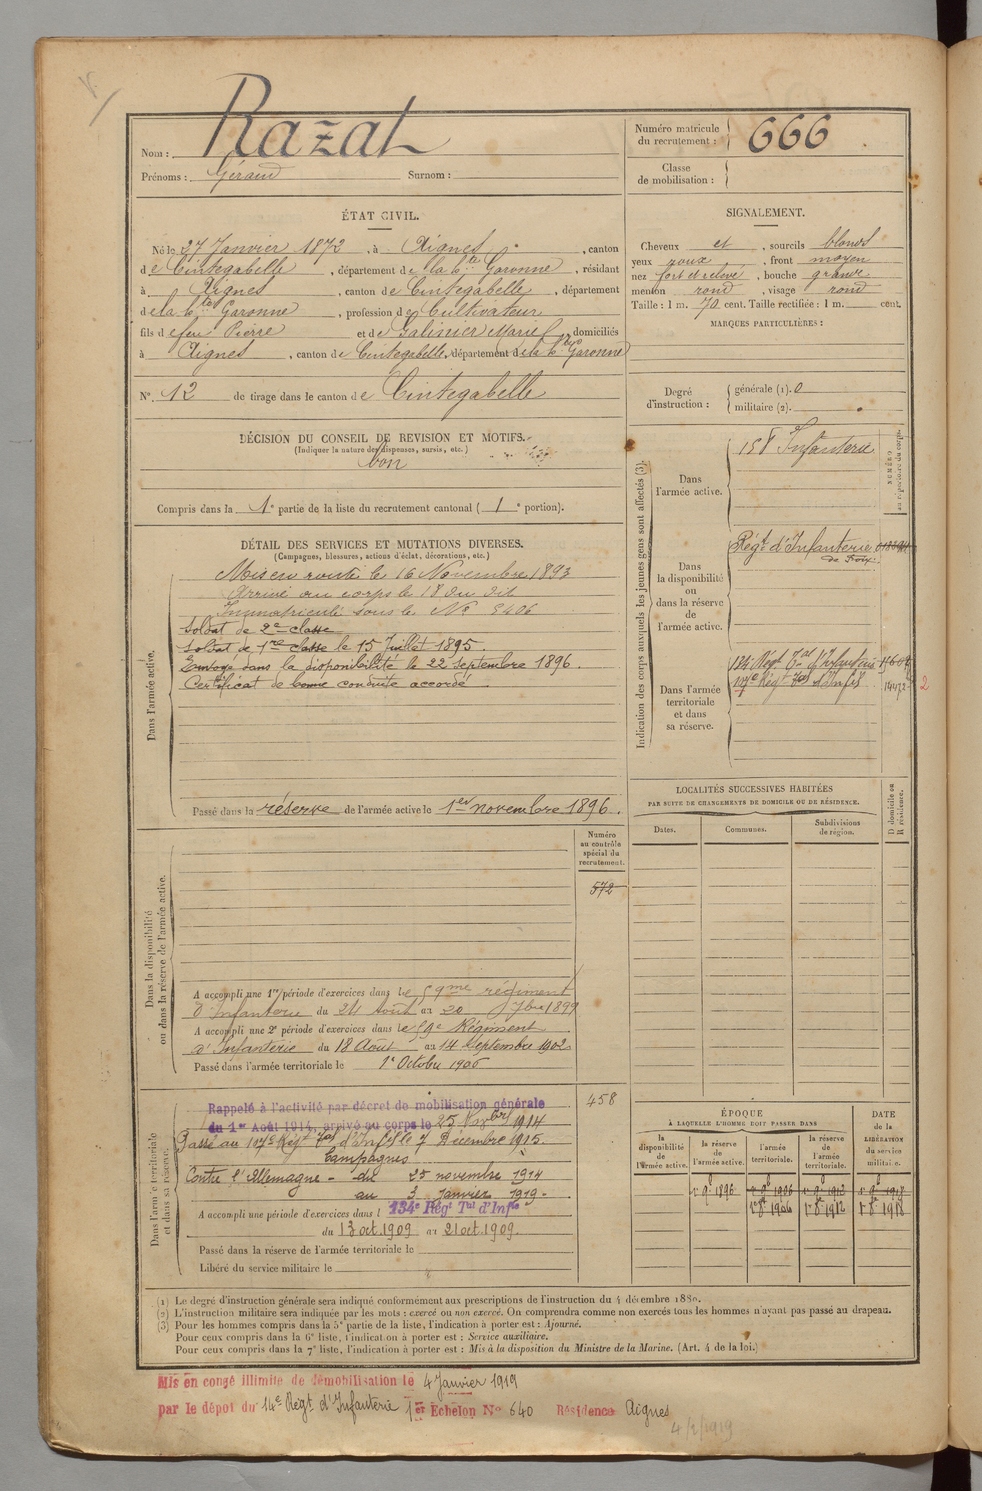 Nom : Razat
Prénoms : Géraud Surnom :
Numéro matricule du recrutement : 666
Classe de mobilisation :
ÉTAT CIVIL.
Né le 27 Janvier 1872, à Aignes, canton
de Cintegabelle, département de la hte Garonne, résidant
à Aignes, canton de Cintegabelle, département
de la hte Garonne, profession de Cultivateur
fils de feu Pierre et de Galinier Marie, domiciliés
à Aignes, canton de Cintegabelle, département de la hte Garonne
No. 12 de tirage dans le canton de Cintegabelle
SIGNALEMENT.
Cheveux et, sourcils blonds
yeux roux, front moyen
nez fort et relevé, bouche grande
menton rond, visage rond
Taille : 1 m. 70 cent. Taille rectifiée : 1 m. cent.
MARQUES PARTICULIÈRES :
Degré d'instruction : générale (1). 0
militaire (2).
DÉCISION DU CONSEIL DE REVISION ET MOTIFS.
(Indiquer la nature des dispenses, sursis, etc.)
bon
Compris dans la 1e partie de la liste du recrutement cantonal (1e portion).
DÉTAIL DES SERVICES ET MUTATIONS DIVERSES.
(Campagnes, blessures, actions d'éclat, décorations, etc.)
Dans l'armée active.
Mis en route le 16 Novembre 1893
Arrivé au corps le 18 du dit
Immatriculé sous le No 8406
Soldat de 2e classe
Soldat de 1re classe le 15 Juillet 1895.
Envoyé dans la disponibilité le 22 septembre 1896.
Certificat de bonne conduite accordé
Passé dans la réserve de l'armée active le 1er novembre 1896.
Indication des corps auxquels les jeunes gens sont affectés (3).
NUMÉRO au répertoire du corps.
Dans l'armée active.
158 Infanterie
Dans la disponibilité ou dans la réserve de l'armée active.
Régt d'Infanterie
de Foix
Dans l'armée territoriale et dans sa réserve.
134e Régt Tal d'Infanterie
107e Régt Tal d'Infie 14472
2
LOCALITÉS SUCCESSIVES HABITÉES
PAR SUITE DE CHANGEMENTS DE DOMICILE OU DE RÉSIDENCE.
Dates. Communes. Subdivisions de région. D domicile ou R résidence.
Dans la disponibilité ou dans la réserve de l'armée active.
Numéro au contrôle spécial du recrutement.
572
A accompli une 1re période d'exercices dans le 59me régiment
d'Infanterie du 24 Août au 20 7bre 1899
A accompli une 2e période d'exercices dans le 59e Régiment
d'Infanterie du 18 Août au 14 Septembre 1902
Passé dans l'armée territoriale le 1er Octobre 1906
Dans l'armée territoriale et dans sa réserve.
458
Rappelé à l'activité par décret de mobilisation générale
du 1er Août 1914, arrivé au corps le 25 Novbre 1914
Passé au 107e Régt Tal d'Infie le 7 Décembre 1915.
Campagnes
Contre l'Allemagne - du 25 novembre 1914
au 3 Janvier 1919 -
A accompli une période d'exercices dans l 134e Régt Tal d'Infie
du 13 oct. 1909 au 21 oct. 1909.
Passé dans la réserve de l'armée territoriale le
Libéré du service militaire le
ÉPOQUE
À LAQUELLE L'HOMME DOIT PASSER DANS
DATE de la LIBÉRATION du service militaire.
la disponibilité de l'armée active. la réserve de l'armée active. l'armée territoriale. la réserve de l'armée territoriale.
1er 9bre 1896 1er 9bre 1906 1er 9bre 1912 1er 9bre 1918
1er 8bre 1906 1er 8bre 1912 1er 8bre 1918
(1) Le degré d'instruction générale sera indiqué conformément aux prescriptions de l'instruction du 4 décembre 1889.
(2) L'instruction militaire sera indiquée par les mots : exercé ou non exercé. On comprendra comme non exercés tous les hommes n'ayant pas passé au drapeau.
(3) Pour les hommes compris dans la 5e partie de la liste, l'indication à porter est : Ajourné.
Pour ceux compris dans la 6e liste, l'indication à porter est : Service auxiliaire.
Pour ceux compris dans la 7e liste, l'indication à porter est : Mis à la disposition du Ministre de la Marine. (Art. 4 de la loi.)
Mis en congé illimité de démobilisation le 4 Janvier 1919
par le dépôt du 14e Régt d'Infanterie 1er Echelon No 640 Résidence Aignes
4/2/1919